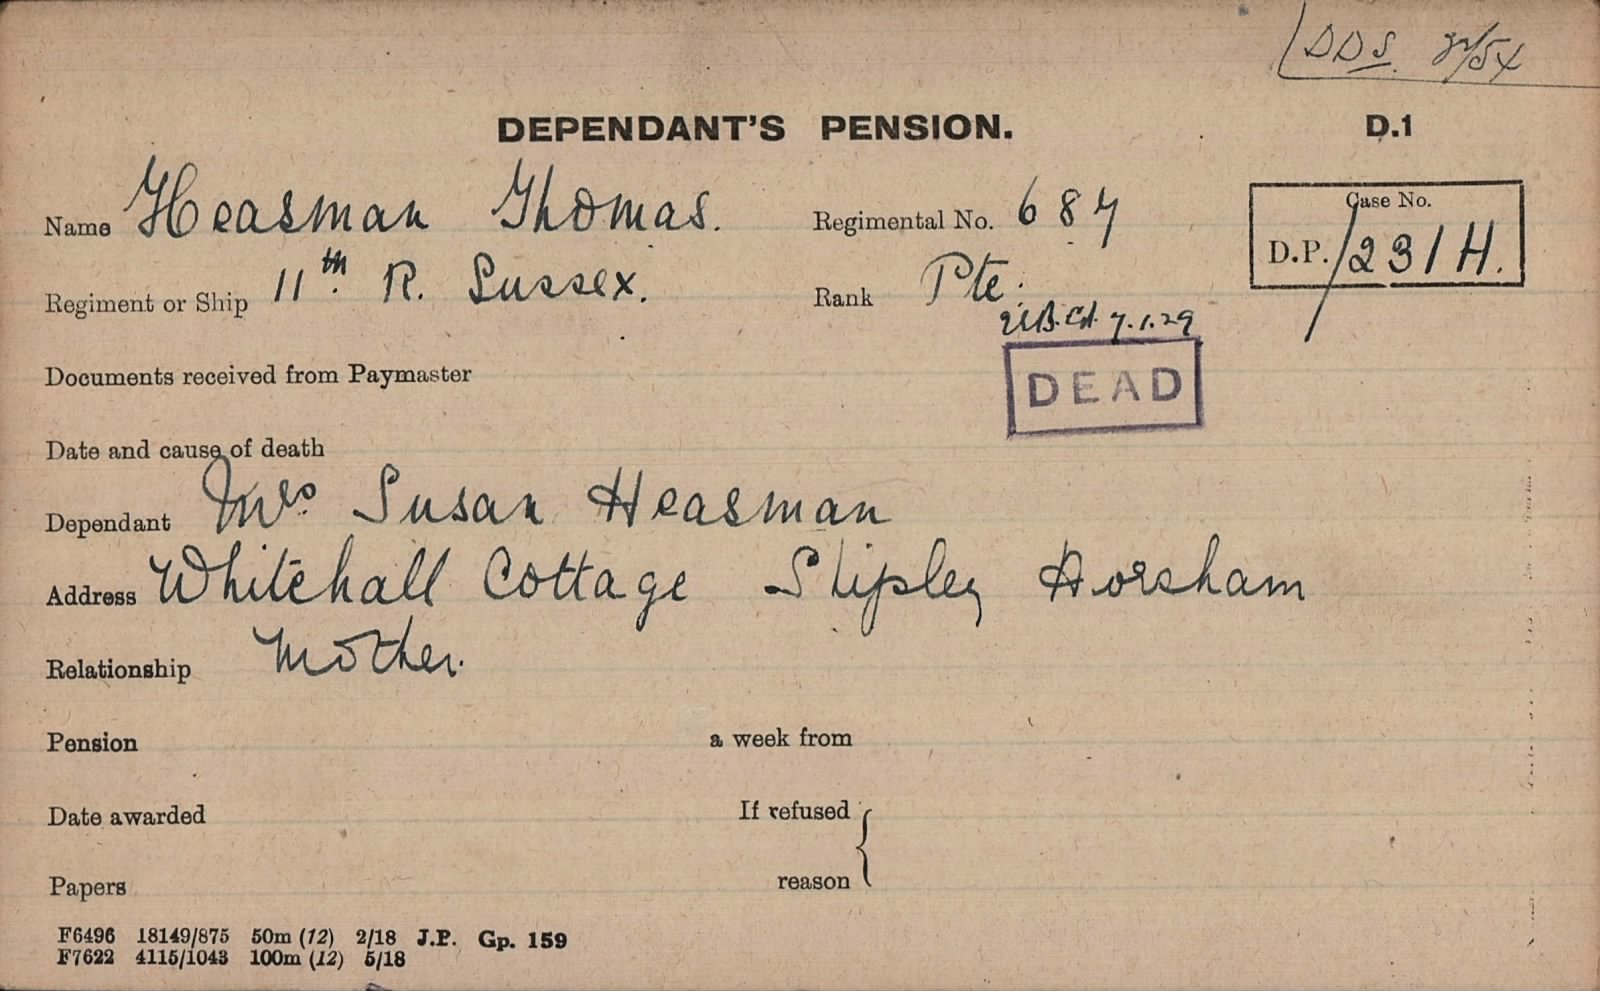 DDS. 2/54
DEPENDANT'S PENSION. D.1
Name Heasman Thomas. Regimental No. 687 Case No.
D.P. /231H.
Regiment or Ship 11th R. Sussex. Rank Pte.
7.1.29
Documents received from Paymaster DEAD
Date and cause of death
Dependant Mrs. Susan Heasman
Address Whitehall Cottage Shipley Horsham
Relationship Mother.
Pension a week from
Date awarded If refused
Papers reason
F6496 18149/875 50m (12) 2/18 J.P. Gp. 159
F7622 4115/1043 100m (12) 5/18